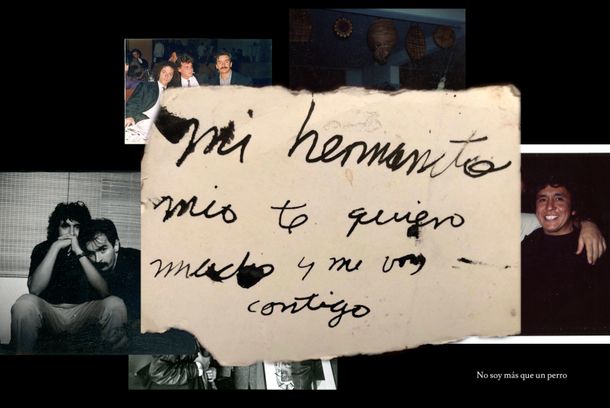 mi hermanito
mio te quiero
mucho y me voy
contigo
No soy más que un perro